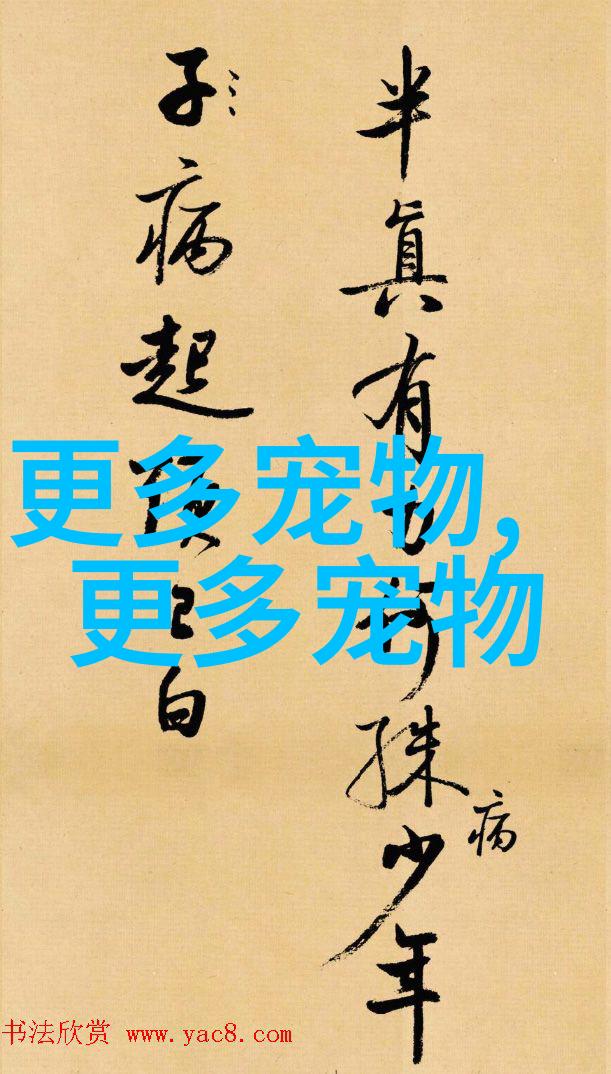 半眞有殊少年
病
子病起已白
更多宠物,
更多宠物
书法欣赏 www.yac8.com